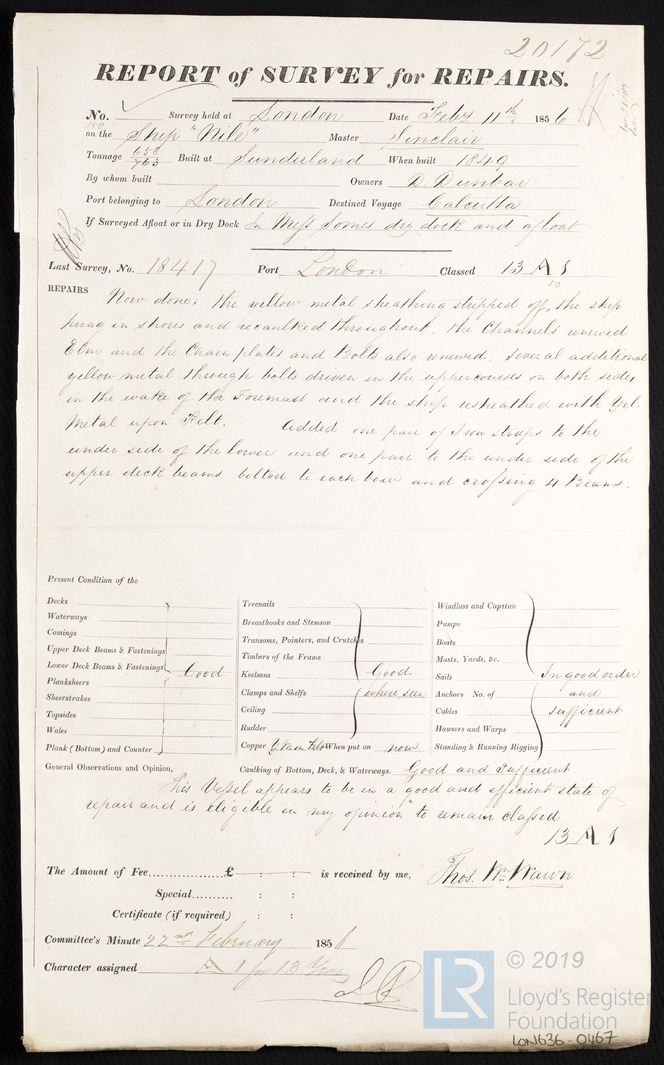 20172
REPORT of SURVEY for REPAIRS.
No. Survey held at London Date Feby 11th 1856
on the Ship "Nile" Master Sinclair
Tonnage 658/763 Built at Sunderland When built 1849
By whom built Owners D. Dunbar
Port belonging to London Destined Voyage Calcutta
If Surveyed Afloat or in Dry Dock In Messrs Somes dry dock and afloat
Last Survey, No. 18417 Port London Classed 13 A 1
50
REPAIRS Now done: the yellow metal sheathing stripped off, the ship
hung in shores and recaulked throughout, the Channels renewed
Elm and the Chain plates and Bolts also renewed. Several additional
yellow metal through bolts driven in the uppercourses on both sides
in the wake of the Foremast and the ship resheathed with Yel.
Metal upon Felt. Added one pair of Iron straps to the
under side of the lower and one pair to the under side of the
upper deck beams bolted to each bow and crossing 4 Beams.
Present Condition of the
Decks
Waterways
Comings
Upper Deck Beams & Fastenings
Lower Deck Beams & Fastenings Good
Planksheers
Sheerstrakes
Topsides
Wales
Plank (Bottom) and Counter
Treenails
Breasthooks and Stemson
Transoms, Pointers, and Crutches
Timbers of the Frame
Keelsons Good
Clamps and Shelfs where seen
Ceiling
Rudder
Copper Y. M on Felt When put on now
Windlass and Capstan
Pumps
Boats
Masts, Yards, &c.
Sails In good order
Anchors No. of and
Cables sufficient
Hawsers and Warps
Standing & Running Rigging
General Observations and Opinion, Caulking of Bottom, Deck, & Waterways. Good and Sufficient
This Vessel appears to be in a good and efficient state of
repair and is eligible in my opinion to remain classed
13 A 1
The Amount of Fee...............£ : : is received by me, Thos. Wm. Wawn
Special......... : :
Certificate (if required) : :
Committee's Minute 22nd February 1856
Character assigned A 1 for 13 Years
LR
© 2019
Lloyd's Register
Foundation
LON636-0467